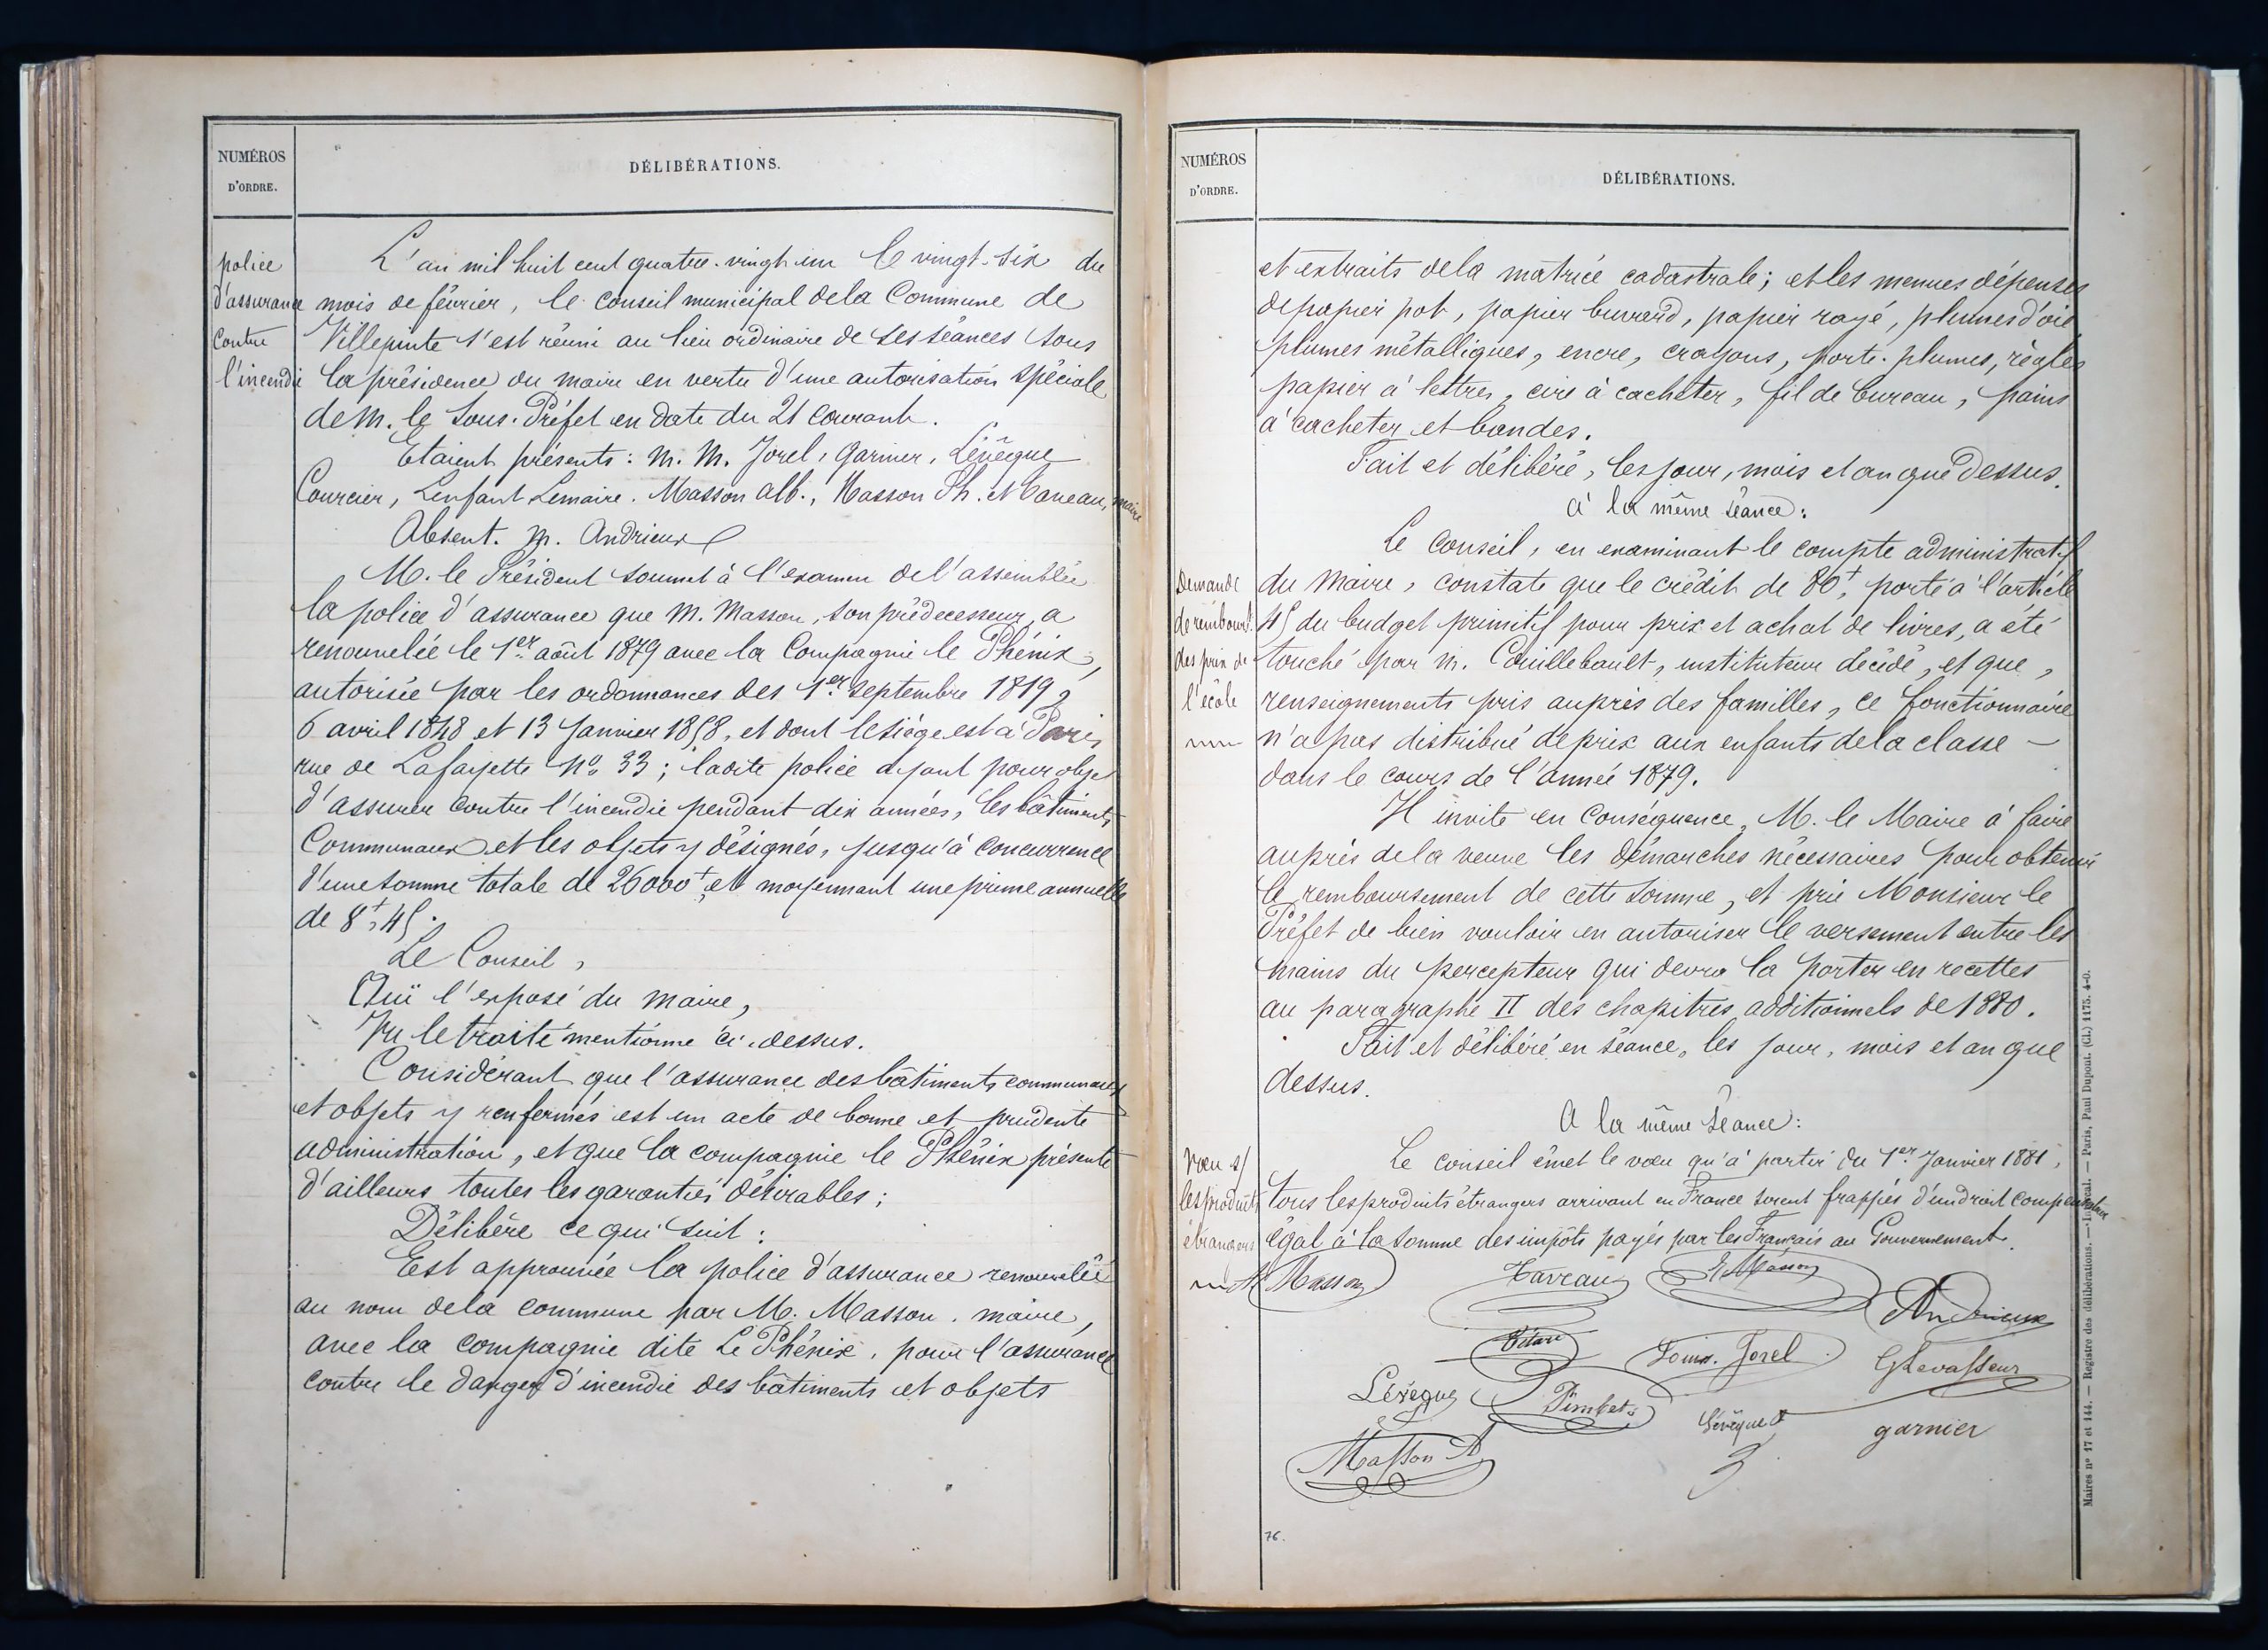 NUMÉROS
D'ORDRE.
DÉLIBÉRATIONS.
police
d'assurance
contre
l'incendie
L'an mil huit cent quatre-vingt-un le vingt-six du
mois de février, le conseil municipal de la Commune de
Villepinte s'est réuni au lieu ordinaire de ses séances sous
la présidence du maire en vertu d'une autorisation spéciale
de M. le Sous-Préfet en date du 21 courant.
Etaient présents : M. M. Jorel, Garnier, Lévêque
Courcier, Lenfant Lemaire. Masson Alb., Masson Th. et maire
Absent. M. Andrieux
M. le Président soumet à l'examen de l'assemblée
la police d'assurance que M. Masson, son prédécesseur, a
renouvelée le 1er août 1879 avec la Compagnie le Phénix,
autorisée par les ordonnances des 1er septembre 1819,
6 avril 1848 et 13 Janvier 1858, et dont le siége est à Paris
rue de Lafayette No 33 ; ladite police ayant pour objet
d'assurer contre l'incendie pendant dix années, les bâtiments
Communaux et les objets y désignés, jusqu'à concurrence
d'une somme totale de 26000f, et moyennant une prime annuelle
de 8f,45.
Le Conseil,
Ouï l'exposé du maire,
Vu le traité mentionné ci-dessus.
Considérant que l'assurance des bâtiments communaux
et objets y renfermés est un acte de bonne et prudente
administration, et que la compagnie le Phénix présente
d'ailleurs toutes les garanties désirables ;
Délibère ce qui suit :
Est approuvée la police d'assurance renouvelée
au nom de la commune par M. Masson. maire,
avec la compagnie dite Le Phénix, pour l'assurance
contre le danger d'incendie des bâtiments et objets
NUMÉROS
D'ORDRE.
DÉLIBÉRATIONS.
et extraits de la matrice cadastrale ; et les menues dépenses
de papier pot, papier buvard, papier rayé, plumes d'oie
plumes métalliques, encre, crayons, porte-plumes, règles
papier à lettres, cire à cacheter, fil de bureau, pains
à cacheter et bandes.
Fait et délibéré, les jour, mois et an que dessus.
à la même séance :
Demande
de rembours.t
des prix de
l'école
Le Conseil, en examinant le compte administratif
du Maire, constate que le crédit de 80f, porté à l'article
45 du budget primitif pour prix et achat de livres, a été
touché par M. Couillebault, instituteur décédé, et que,
renseignements pris auprès des familles, ce fonctionnaire
n'a pas distribué de prix aux enfants de la classe —
dans le cours de l'année 1879.
Il invite en conséquence, M. le Maire à faire
auprès de la veuve les démarches nécessaires pour obtenir
le remboursement de cette somme, et prie Monsieur le
Préfet de bien vouloir en autoriser le versement entre les
mains du percepteur qui devra la porter en recettes
au paragraphe II des chapitres additionnels de 1880.
Fait et délibéré en séance, les jour, mois et an que
dessus.
A la même séance :
Vœu s/
les produits
étrangers
Le conseil émet le vœu qu'à partir du 1er Janvier 1881,
tous les produits étrangers arrivant en France soient frappés d'un droit compensateur
égal à la somme des impôts payés par les Français au Gouvernement.
Masson
Andrieux
Louis. Jorel
G Levasseur
Lévêque
Pimbet
Lévêque
garnier
Masson A
76.
Maires nos 17 et 144. — Registre des délibérations. — Paris, Paul Dupont. (Cl.) 1175. 4-0.